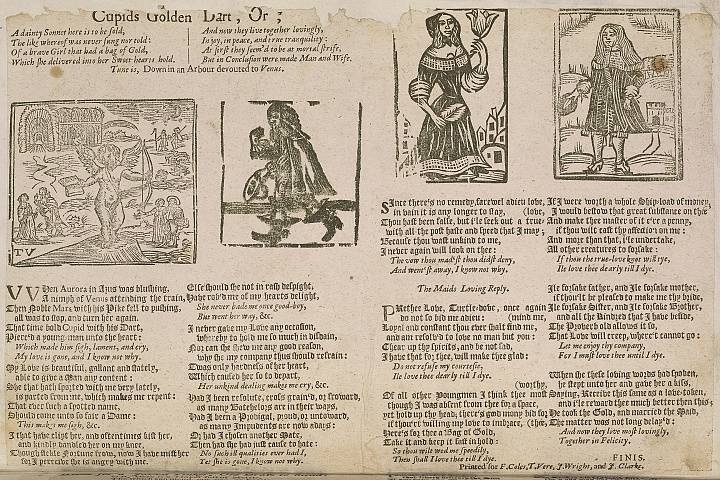 Cupids Golden Dart, Or;
A dainty Sonnet here is to be sold,
The like whereof was never sung nor told:
Of a brave Girl that had a bag of Gold,
Which she delivered into her Sweet-hearts hold.
And now they live together lovingly,
In joy, in peace, and true tranquility:
At first they seem'd to be at mortal strife,
But in Conclusion were made Man and Wife.
Tune is, Down in an Arbour devouted to Venus.
TV
VVHen Aurora in Azus was blushing,
A nimph of Venus attending the train,
Then Noble Mars with his Pike fell to pushing,
all was to stop, and turn her again.
That time bold Cupid with his Dart,
Pierc'd a young man unto the heart:
Which made him sigh, lament, and cry,
My love is gone, and I know not why.
My Love is beautiful, gallant and stately,
able to give a Man any content:
She that hath sported with me very lately,
is parted from me, which makes me repent:
That ever such a spotted name,
Should come unto so fair a Dame:
This makes me sigh, &c.
I that have clipt her, and oftentimes kist her,
and kindly dandled her on my knee,
Though fickle Fortune frown, now I have mist her
for I perceive she is angry with me.
Else should she not in such despight,
Have rob'd me of my hearts delight,
She never bade me once good-bey,
But went her way, &c.
I never gave my Love any occasion,
whereby to hold me so much in disdain,
Nor can she shew me any good reason,
why she my company thus should refrain:
T was only hardness of her heart,
Which caused her so to depart,
Her unkind dealing makes me cry, &c.
Had I been resolute, cross grain'd, or froward,
as many Batchelors are in their ways,
Had I been a Prodigal, proud, or untoward,
as many Impudents are now adays:
Or had I chosen another Mate,
Then had she had just cause to hate:
No such ill qualities ever had I,
Yet she is gone, I know not why.
SInce there's no remedy, farewel adieu love,
in vain it is any longer to stay, (love,
Thou hast been false, but i'le seek out a true-
with all the post haste and speed that I may;
Because thou wast unkind to me,
I never again will look on thee:
The vow thou mad'st thou didst deny,
And went'st away, I know not why.
The Maids Loving Reply.
PRethee Love, Turtle-dove, once again
do not so bid me adieu: (mind me,
Loyal and constant thou ever shalt find me,
and am resolv'd to love no man but you:
Chear up thy spirits, and be not sad,
I have that for thee, will make thee glad:
Do not refuse my courtesie,
Ile love thee dearly till I dye.
(worthy,
Of all other Youngmen I think thee most
though I was absent from thee for a space,
yet hold up thy head, there's good mony bid for
if thou'rt willing my love to imbrace, (thee,
Here's for thee a Bag of Gold,
Take it and keep it fast in hold:
So thou wilt wed me speedily,
Then shall I love thee till I dye.
If I were worth a whole Ship-load of money,
I would bestow that great substance on thee
And make thee master of it e're a penny,
if thou wilt cast thy affection on me:
And more than that, i'le undertake,
All other creatures to forsake:
If thou the true-love knot wilt tye,
Ile love thee dearly till I dye.
Ile forsake father, and Ile forsake mother,
if thou'lt be pleased to make me thy bride,
Ile forsake Sister, and Ile forsake Brother,
and all the kindred that I have beside,
The Proverb old allows it so,
That Love will creep, where't cannot go:
Let me enjoy thy company,
For I must love thee until I dye.
When she these loving words had spoken,
he stept unto her and gave her a kiss,
Saying, Receive this same as a love-token,
and i'le reward thee much better than this;
He took the Gold, and married the Maid,
The matter was not long delay'd:
And now they live most lovingly,
Together in Felicity.
FINIS.
Printed for F. Coles, T. Vere, J. Wright, and J. Clarke.